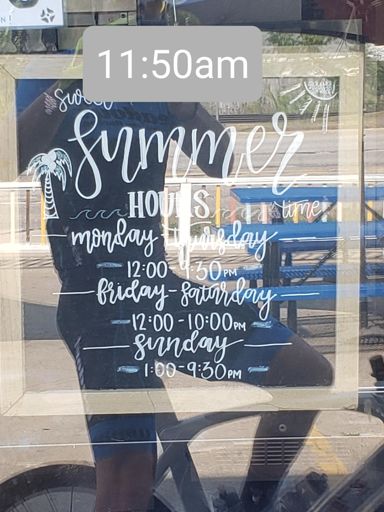 11:50am
sweet
Summer
HOURS
time
monday - thursday
12:00 - 9:30PM
friday - saturday
12:00 - 10:00PM
sunday
1:00 - 9:30PM